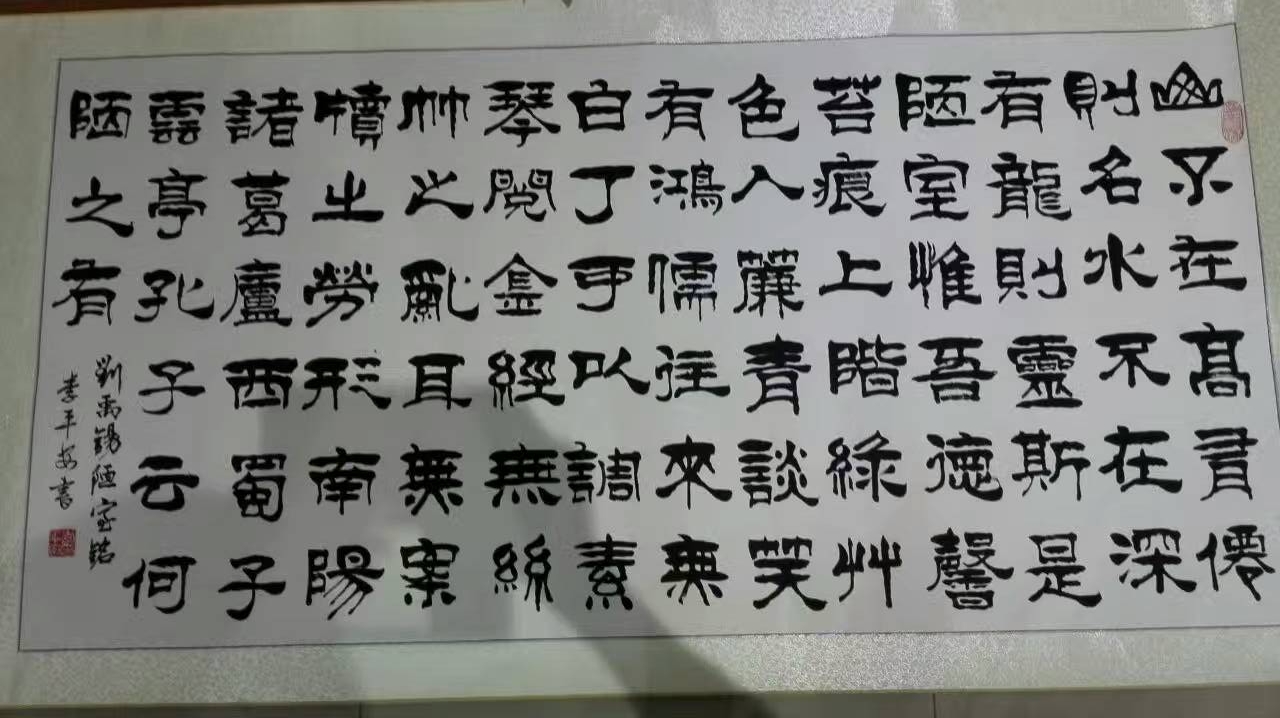 山不在高有僊
則名水不在深
有龍則靈斯是
陋室惟吾德馨
苔痕上階綠艸
色入簾青談笑
有鴻儒往來無
白丁可以調素
琴閱金經無絲
竹之亂耳無案
牘之勞形南陽
諸葛廬西蜀子
雲亭孔子云何
陋之有
劉禹錫陋室銘
李平安書